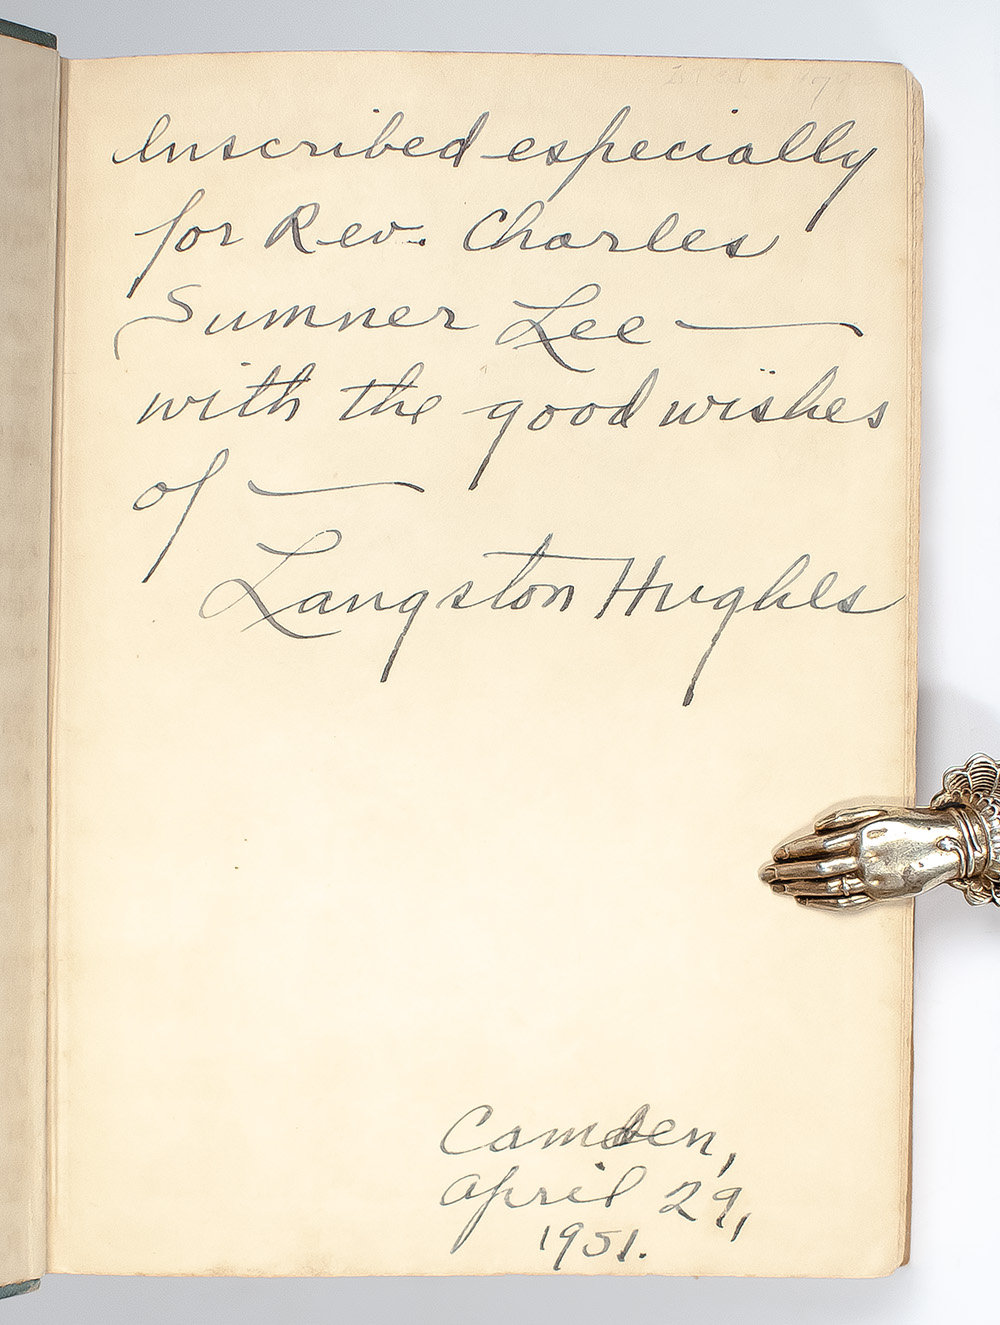 Inscribed especially
for Rev. Charles
Sumner Lee —
with the good wishes
of —
Langston Hughes
Camden,
April 29,
1951.